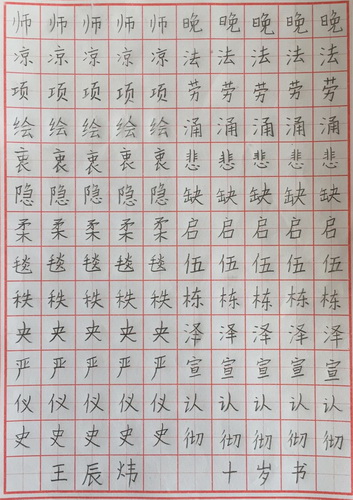 师师师师师晚晚晚晚晚
凉凉凉凉凉法法法法法
项项项项项劳劳劳劳劳
绘绘绘绘绘涌涌涌涌涌
衷衷衷衷衷悲悲悲悲悲
隐隐隐隐隐缺缺缺缺缺
柔柔柔柔柔启启启启启
毯毯毯毯毯伍伍伍伍伍
秩秩秩秩秩栋栋栋栋栋
央央央央央泽泽泽泽泽
严严严严严宣宣宣宣宣
仪仪仪仪仪认认认认认
史史史史史彻彻彻彻彻
王辰炜 十岁书